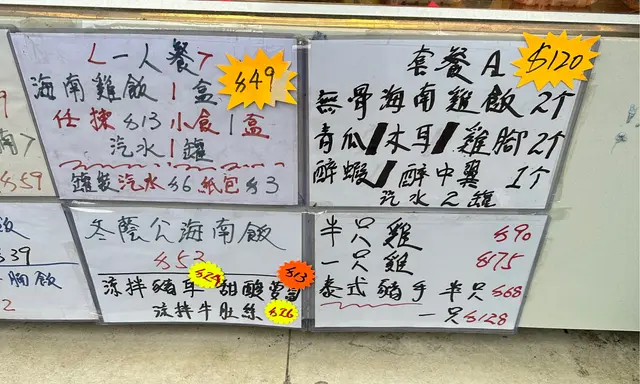 <一人餐>
$49
海南雞飯1盒
任揀$13小食1盒
汽水1罐
罐裝汽水$6紙包$3
套餐A
$120
無骨海南雞飯2个
青瓜/木耳/雞腳2个
醉蝦/醉中翼1个
汽水2罐
$59
冬蔭公海南飯
$53
涼拌豬耳
$24
甜酸
$13
涼拌牛肚絲
$26
半只雞 $90
一只雞 $175
泰式豬手 半只$68
一只$128
飯
$39
腩飯
2